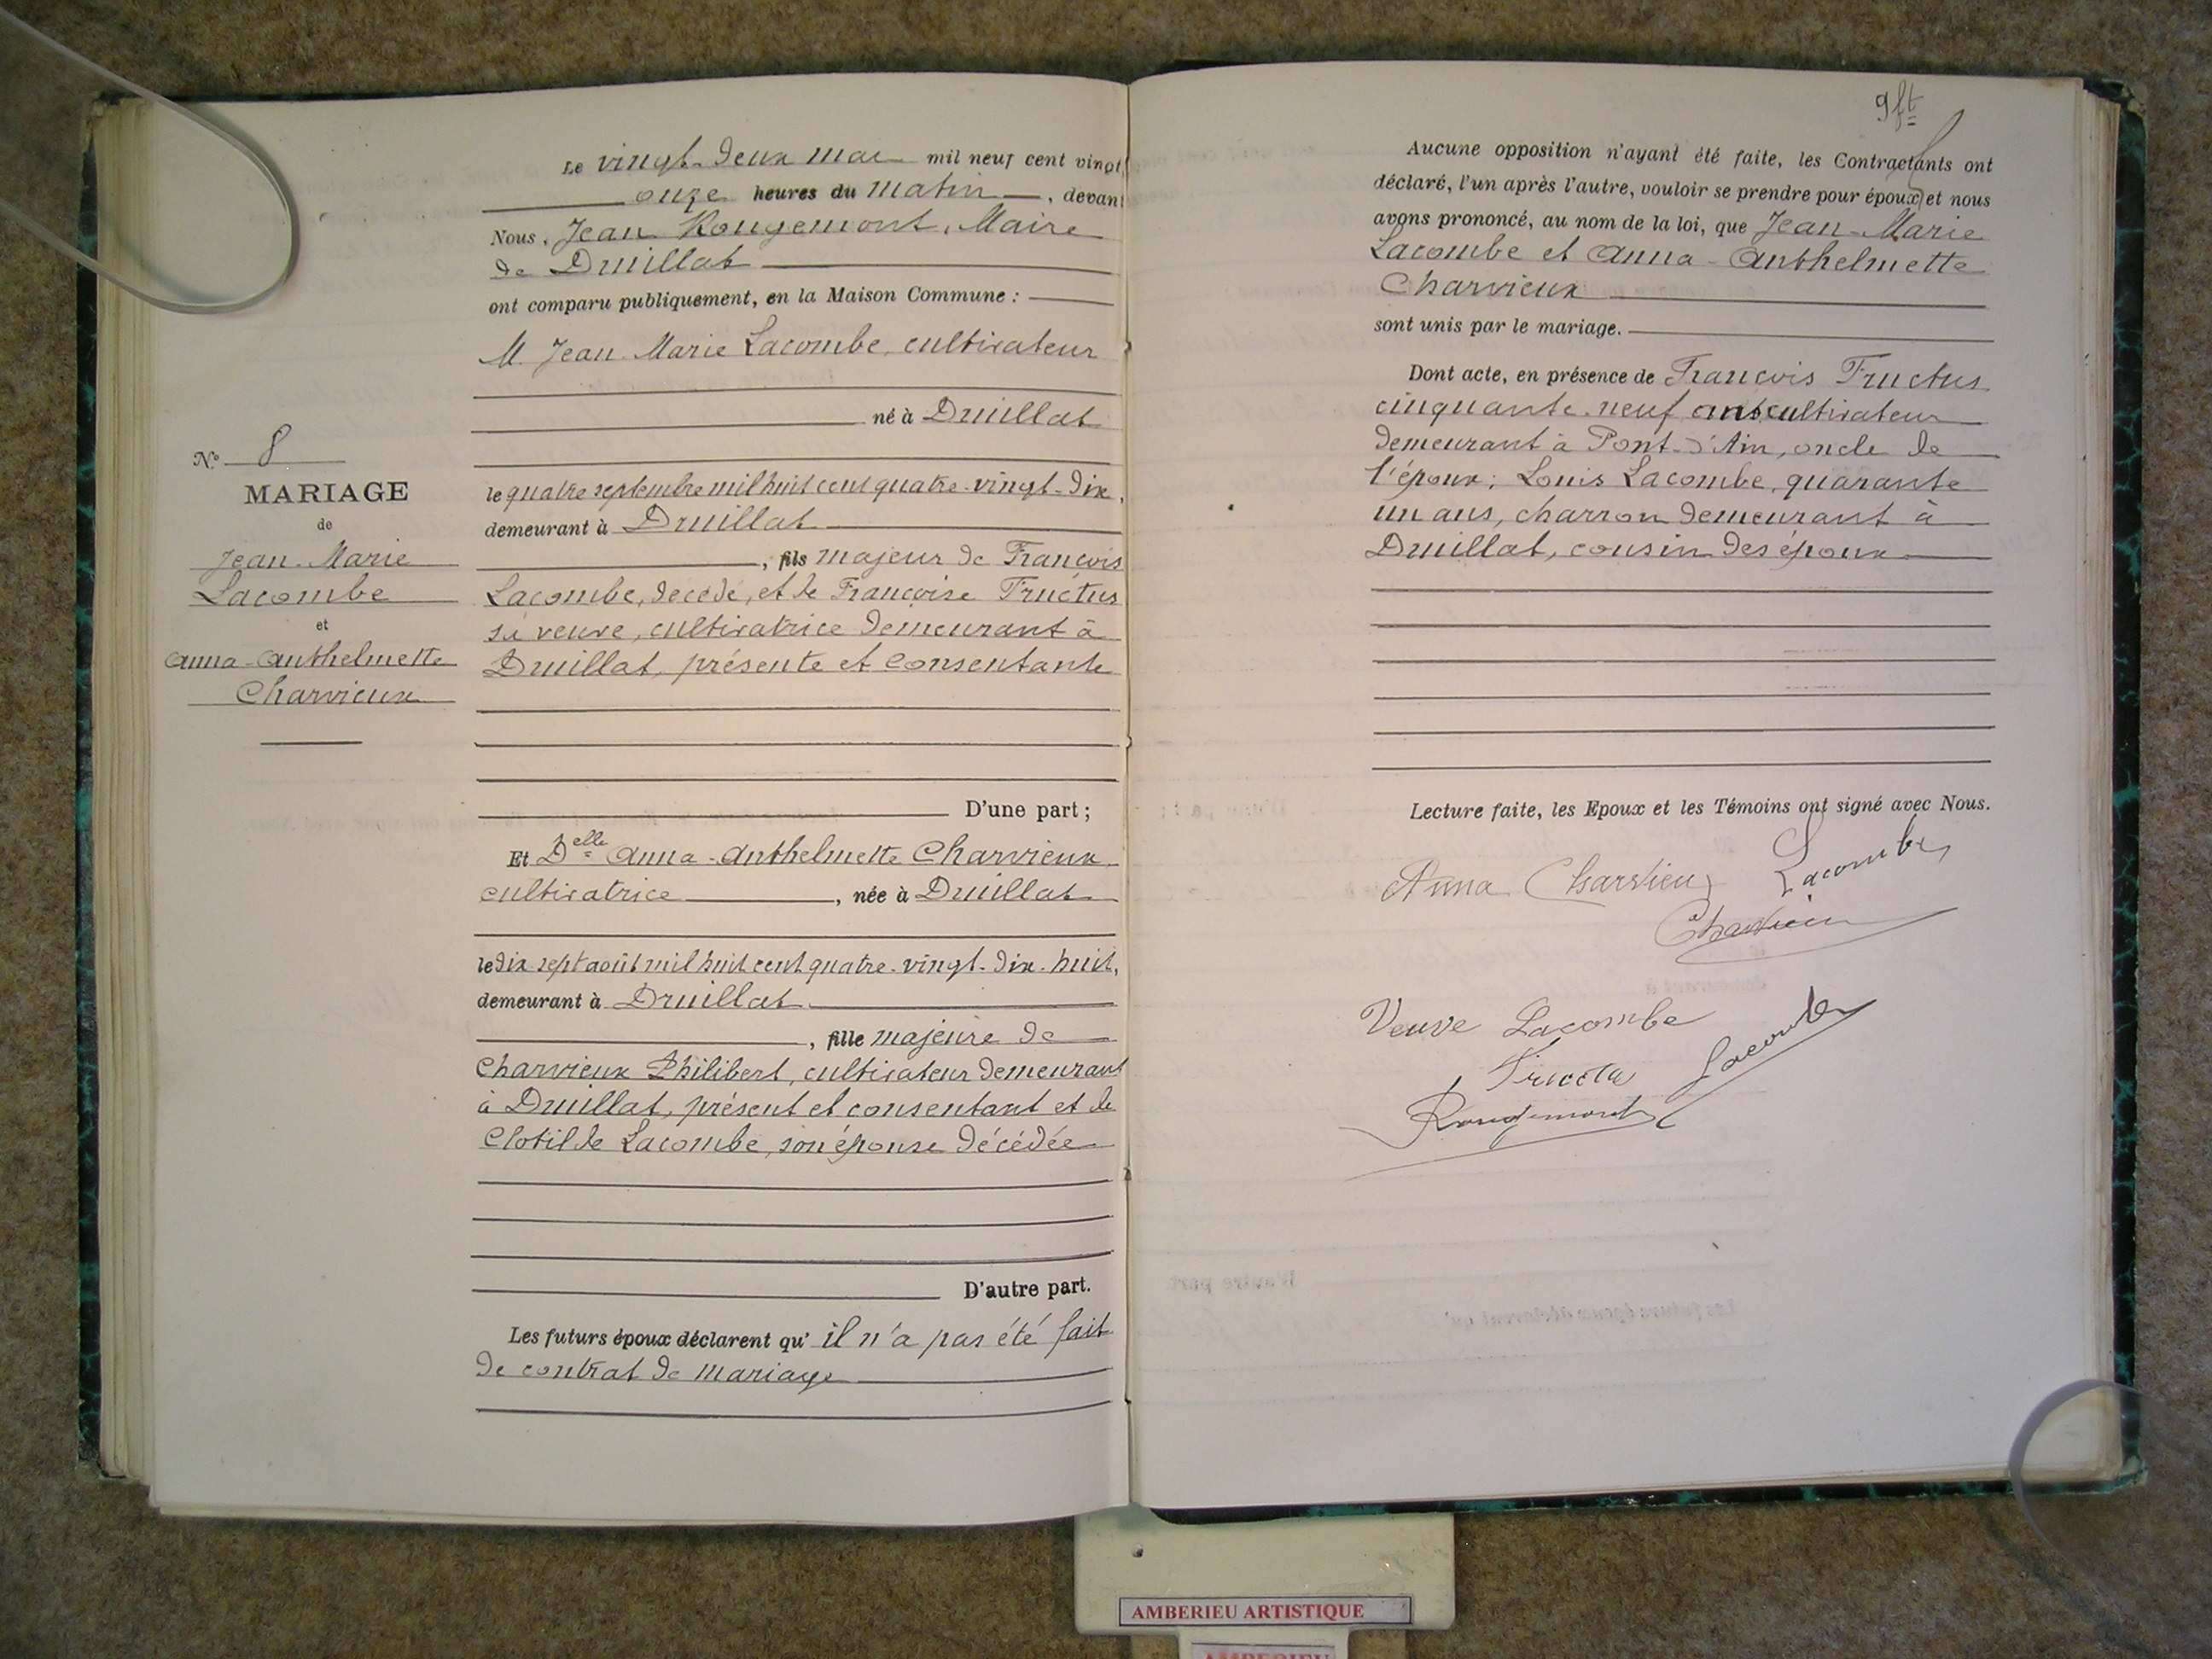 Le vingt-deux mai mil neuf cent vingt,
onze heures du matin, devant
Nous, Jean Rougemont, Maire
de Druillat
ont comparu publiquement, en la Maison Commune :
M. Jean Marie Lacombe, cultivateur
né à Druillat
le quatre septembre mil huit cent quatre-vingt-dix,
demeurant à Druillat
, fils majeur de François
Lacombe, décédé, et de Françoise Fructus
sa veuve, cultivatrice demeurant à
Druillat, présente et consentante
D'une part ;
Et Delle Anna-Anthelmette Charvieux
cultivatrice, née à Druillat
le dix sept août mil huit cent quatre-vingt-dix-huit,
demeurant à Druillat
, fille majeure de
Charvieux Philibert, cultivateur demeurant
à Druillat, présent et consentant et de
Clotilde Lacombe, son épouse décédée
D'autre part.
Les futurs époux déclarent qu' il n'a pas été fait
de contrat de mariage
N° 8
MARIAGE
de
Jean-Marie
Lacombe
et
Anna-Anthelmette
Charvieux
9 ft
Aucune opposition n'ayant été faite, les Contractants ont
déclaré, l'un après l'autre, vouloir se prendre pour époux et nous
avons prononcé, au nom de la loi, que Jean-Marie
Lacombe et Anna-Anthelmette
Charvieux
sont unis par le mariage.
Dont acte, en présence de François Fructus
cinquante-neuf ans cultivateur
demeurant à Pont-d'Ain, oncle de
l'époux; Louis Lacombe, quarante
un ans, charron demeurant à
Druillat, cousin des époux
Lecture faite, les Epoux et les Témoins ont signé avec Nous.
Anna Charvieux Lacombe
Charvieux
Veuve Lacombe
Lacombe
Rougemont
AMBERIEU ARTISTIQUE
AMBERIEU